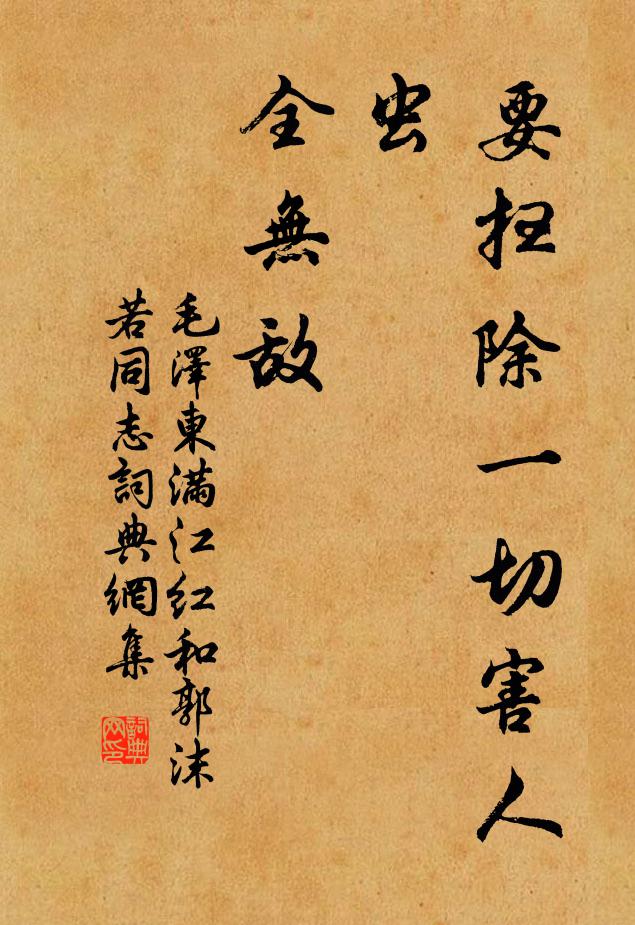 要扫除一切害人
虫
全無敌
毛澤東满江红和郭沫
若同志詞典網集
詞典
网印